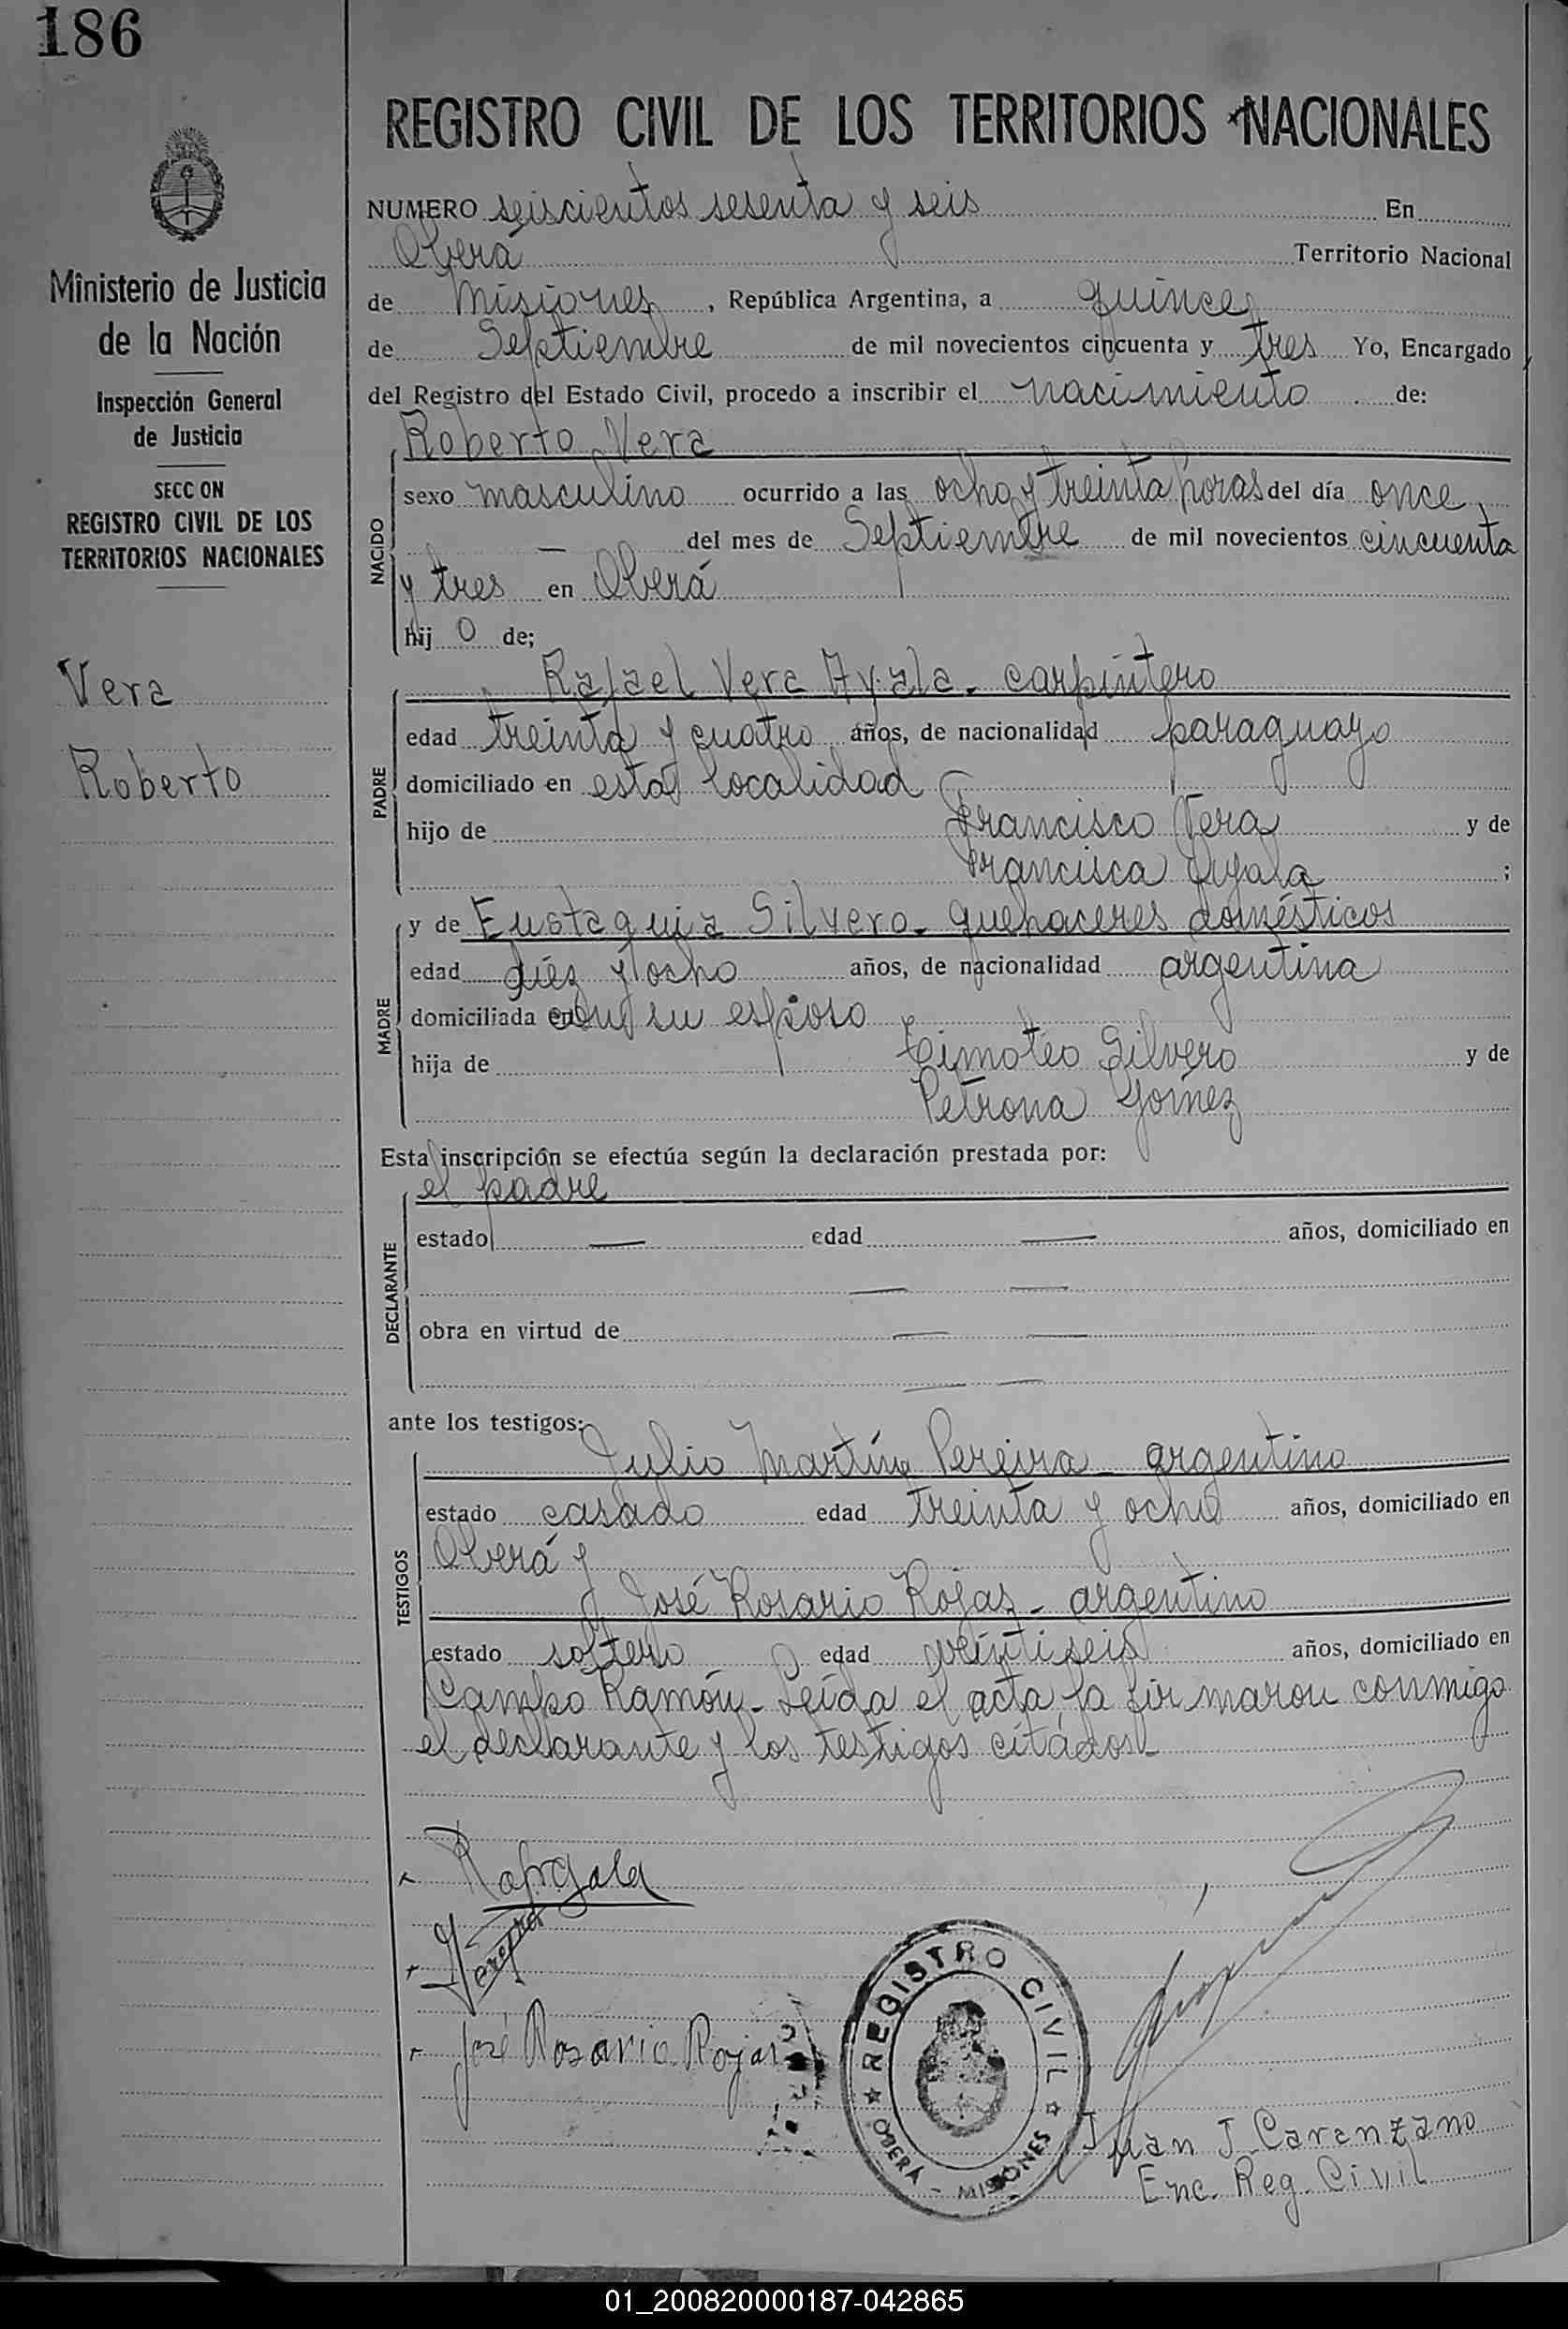 186
REGISTRO CIVIL DE LOS TERRITORIOS NACIONALES
Ministerio de Justicia
de la Nación
Inspección General
de Justicia
SECC ON
REGISTRO CIVIL DE LOS
TERRITORIOS NACIONALES
Vera
Roberto
NUMERO seiscientos sesenta y seis En
Oberá Territorio Nacional
de Misiones, República Argentina, a quince
de Septiembre de mil novecientos cincuenta y tres Yo, Encargado
del Registro del Estado Civil, procedo a inscribir el nacimiento de:
NACIDO
Roberto Vera
sexo masculino ocurrido a las ocho y treinta horas del día once
— del mes de Septiembre de mil novecientos cincuenta
y tres en Oberá
hij o de;
PADRE
Rafael Vera Ayala - carpintero
edad treinta y cuatro años, de nacionalidad paraguayo
domiciliado en esta localidad
hijo de Francisco Vera y de
Francisca Ayala ;
MADRE
y de Eustaquia Silvero - quehaceres domésticos
edad diez y ocho años, de nacionalidad argentina
domiciliada en con su esposo
hija de Timoteo Silvero y de
Petrona Gómez
Esta inscripción se efectúa según la declaración prestada por:
DECLARANTE
el padre
estado — edad — años, domiciliado en
— —
obra en virtud de — —
— —
ante los testigos:
TESTIGOS
Julio Martín Pereira - argentino
estado casado edad treinta y ocho años, domiciliado en
Oberá y
José Rosario Rojas - argentino
estado soltero edad veintiseis años, domiciliado en
Campo Ramón - Leída el acta, la firmaron conmigo
el declarante y los testigos citados -
José Rosario Rojas
REGISTRO CIVIL
OBERÁ - MISIONES
Juan J. Caranzano
Enc. Reg. Civil
01_200820000187-042865